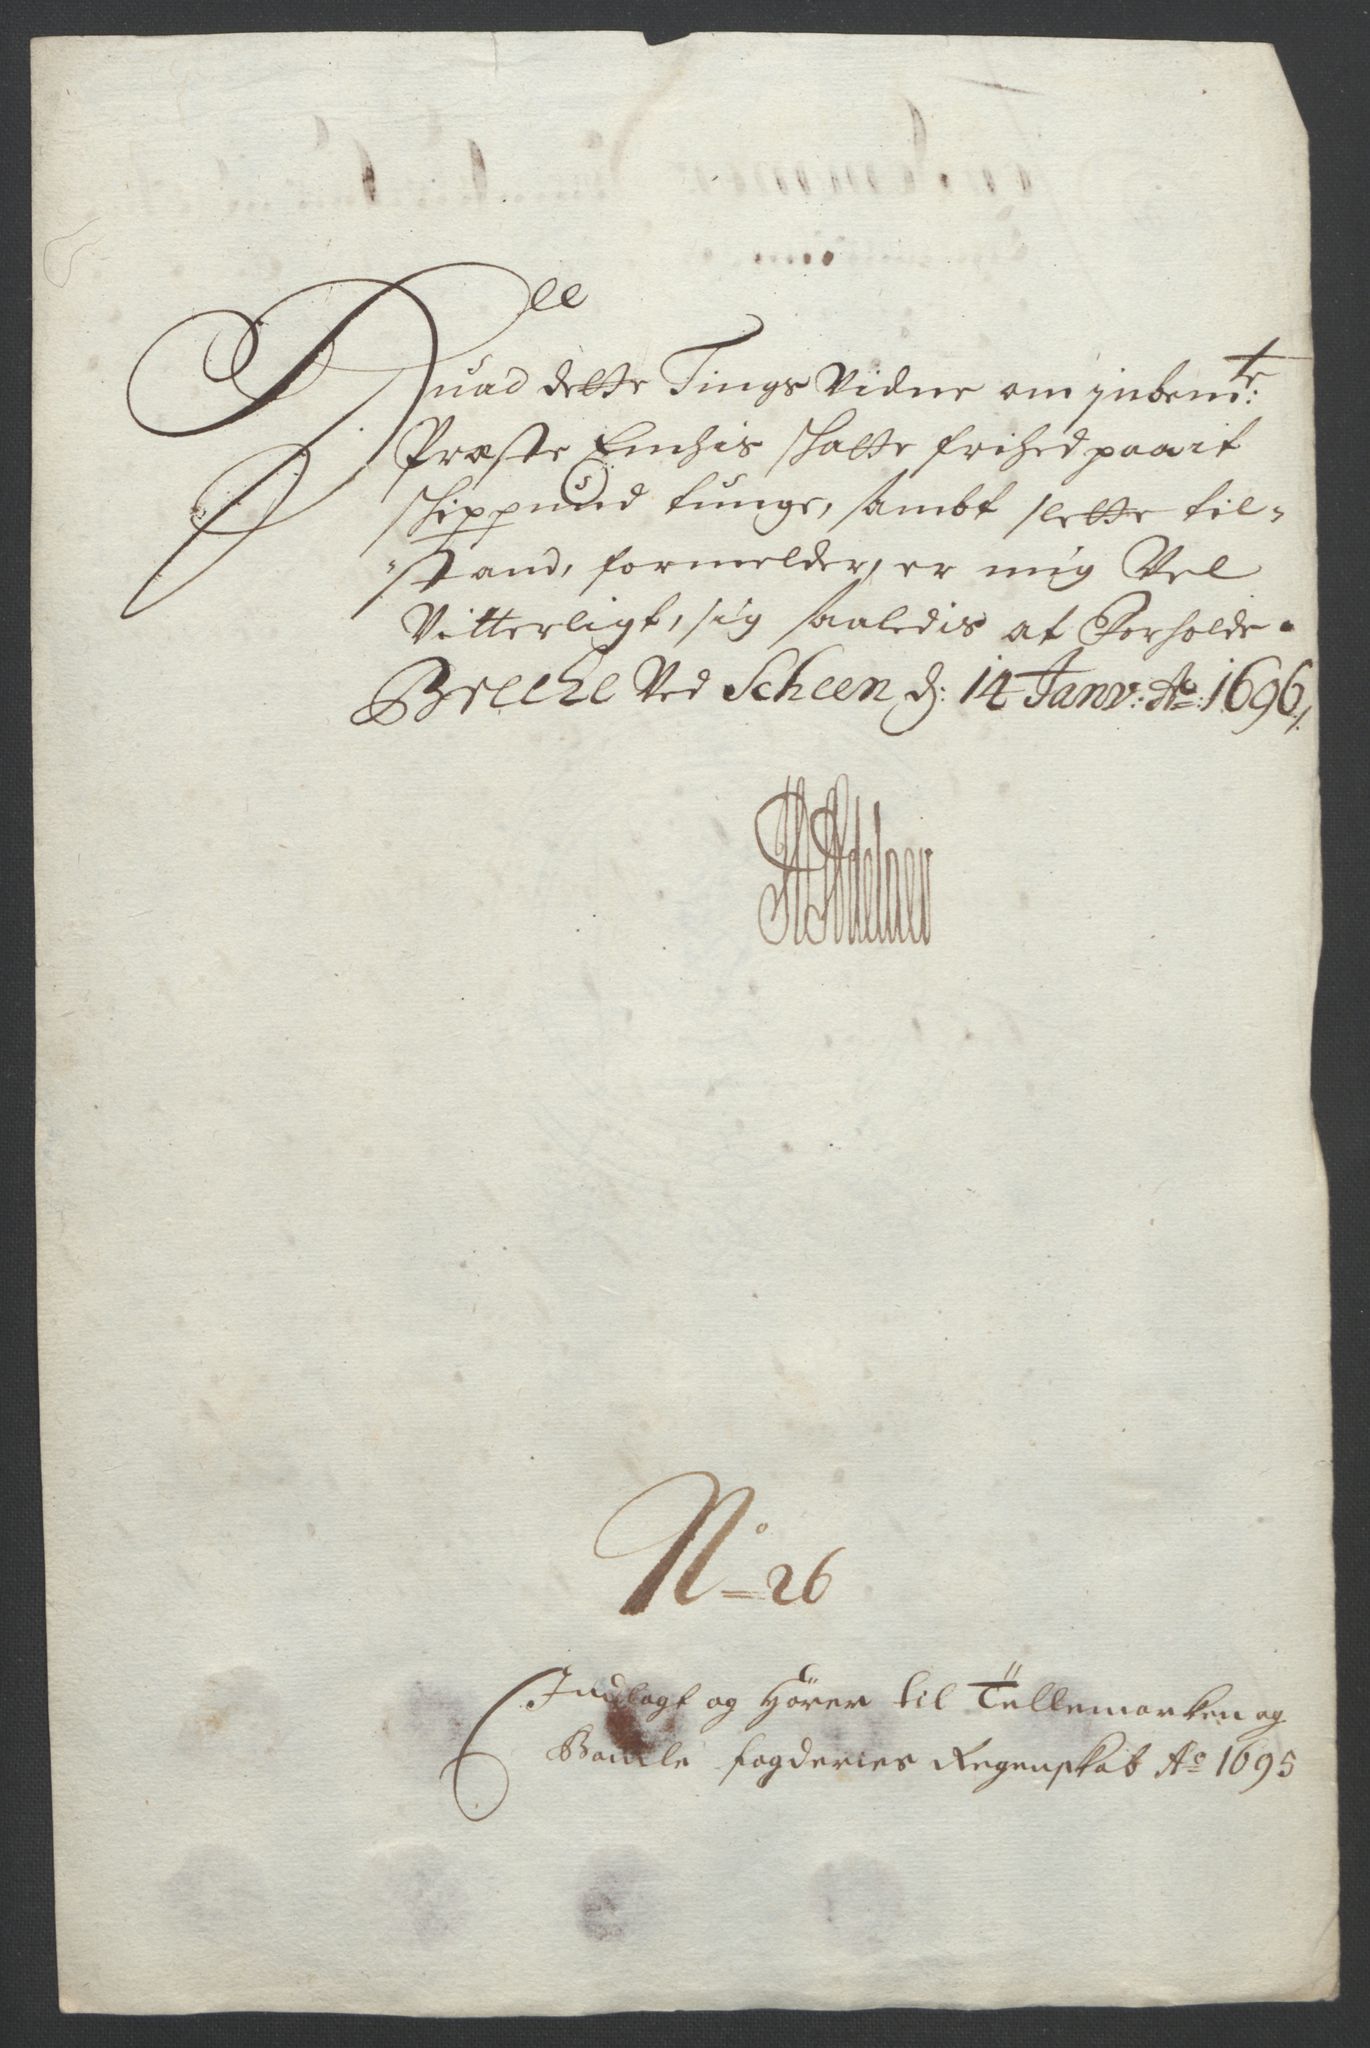 Huad dette Tings Vidne om jnbemte:
Præste Enchis skatte frihed paa it
skippund tunge, sambt slette til-
stand, formelder, er mig Vel
Vitterligt, sig saaledis at Forholde.
Brecke Ved Scheen d: 14 Janv: Ao: 1696,
HAdelaer
No 26
Indlagt og Hører til Tellemarken og
Bamle fogderies Regenskab Ao 1695